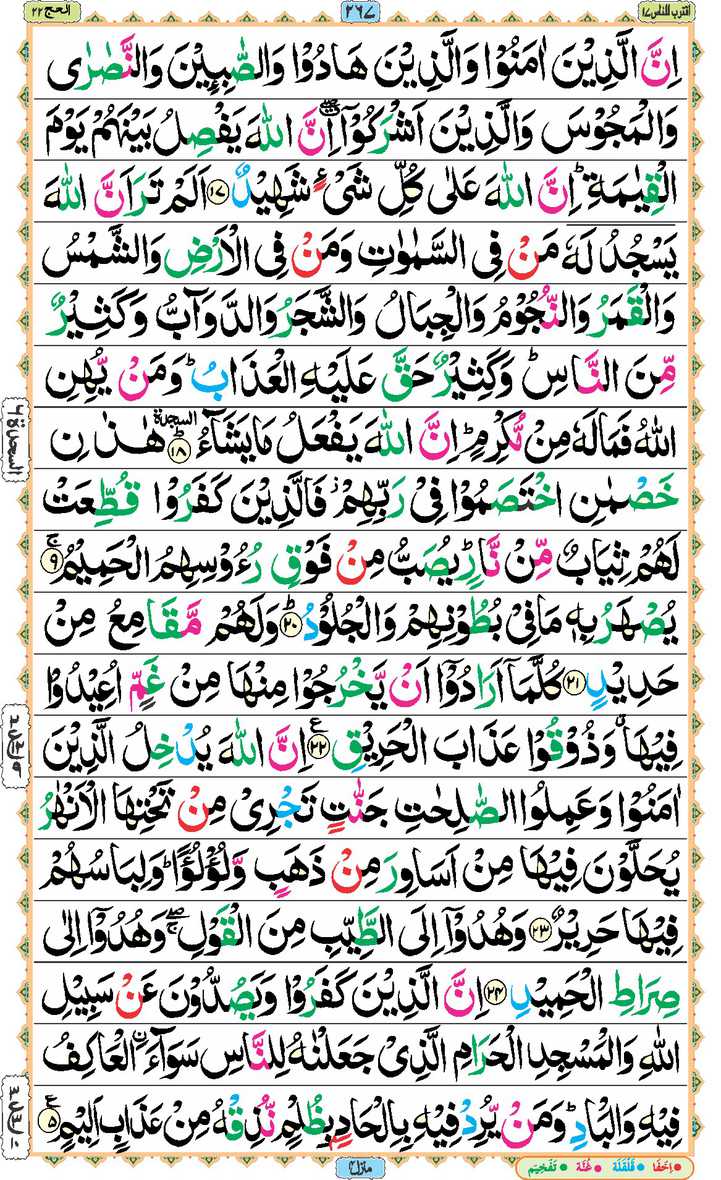 اقترب للناس ١٧
٢٦٧
الحج ٢٢
اِنَّ الَّذِيۡنَ اٰمَنُوۡا وَالَّذِيۡنَ هَادُوۡا وَالصّٰبِـِٕيۡنَ وَالنَّصٰرٰى
وَالۡمَجُوۡسَ وَالَّذِيۡنَ اَشۡرَكُوۡۤا ‌ۖ اِنَّ اللّٰهَ يَفۡصِلُ بَيۡنَهُمۡ يَوۡمَ
الۡقِيٰمَةِ‌ ؕ اِنَّ اللّٰهَ عَلٰى كُلِّ شَىۡءٍ شَهِيۡدٌ ۱۷ اَلَمۡ تَرَ اَنَّ اللّٰهَ
يَسۡجُدُ لَهٗ مَنۡ فِى السَّمٰوٰتِ وَمَنۡ فِى الۡاَرۡضِ وَالشَّمۡسُ
وَالۡقَمَرُ وَالنُّجُوۡمُ وَالۡجِبَالُ وَالشَّجَرُ وَالدَّوَآبُّ وَكَثِيۡرٌ
مِّنَ النَّاسِ‌ ؕ وَكَثِيۡرٌ حَقَّ عَلَيۡهِ الۡعَذَابُ‌ ؕ وَمَنۡ يُّهِنِ
اللّٰهُ فَمَا لَهٗ مِنۡ مُّكۡرِمٍ‌ ؕ اِنَّ اللّٰهَ يَفۡعَلُ مَا يَشَآءُ ؕ السجدة ۱۸ هٰذٰنِ
خَصۡمٰنِ اخۡتَصَمُوۡا فِىۡ رَبِّهِمۡ‌ فَالَّذِيۡنَ كَفَرُوۡا قُطِّعَتۡ
لَهُمۡ ثِيَابٌ مِّنۡ نَّارٍ ؕ يُصَبُّ مِنۡ فَوۡقِ رُءُوۡسِهِمُ الۡحَمِيۡمُ‌ ۚ ۹
يُصۡهَرُ بِهٖ مَا فِىۡ بُطُوۡنِهِمۡ وَالۡجُلُوۡدُ ؕ ۲۰ وَلَهُمۡ مَّقَامِعُ مِنۡ
حَدِيۡدٍ ۲۱ كُلَّمَاۤ اَرَادُوۡۤا اَنۡ يَّخۡرُجُوۡا مِنۡهَا مِنۡ غَمٍّ اُعِيۡدُوۡا
فِيۡهَا وَذُوۡقُوۡا عَذَابَ الۡحَرِيۡقِ ع ۲۲ اِنَّ اللّٰهَ يُدۡخِلُ الَّذِيۡنَ
اٰمَنُوۡا وَعَمِلُوا الصّٰلِحٰتِ جَنّٰتٍ تَجۡرِىۡ مِنۡ تَحۡتِهَا الۡاَنۡهٰرُ
يُحَلَّوۡنَ فِيۡهَا مِنۡ اَسَاوِرَ مِنۡ ذَهَبٍ وَّلُـؤۡلُـؤًا‌ ؕ وَلِبَاسُهُمۡ
فِيۡهَا حَرِيۡرٌ ۲۳ وَهُدُوۡۤا اِلَى الطَّيِّبِ مِنَ الۡقَوۡلِ ۖۚ وَهُدُوۡۤا اِلٰى
صِرَاطِ الۡحَمِيۡدِ ۲۴ اِنَّ الَّذِيۡنَ كَفَرُوۡا وَيَصُدُّوۡنَ عَنۡ سَبِيۡلِ
اللّٰهِ وَالۡمَسۡجِدِ الۡحَـرَامِ الَّذِىۡ جَعَلۡنٰهُ لِلنَّاسِ سَوَآءَ ۨالۡعَاكِفُ
فِيۡهِ وَالۡبَادِ‌ ؕ وَمَنۡ يُّرِدۡ فِيۡهِ بِاِلۡحَـادٍۢ بِظُلۡمٍ نُّذِقۡهُ مِنۡ عَذَابٍ اَ لِيۡمٍ ع ۵
منزل ۴
اِخفَا قَلْقَلَة غُنَّة تَفْخِيْم
السجدة ۶